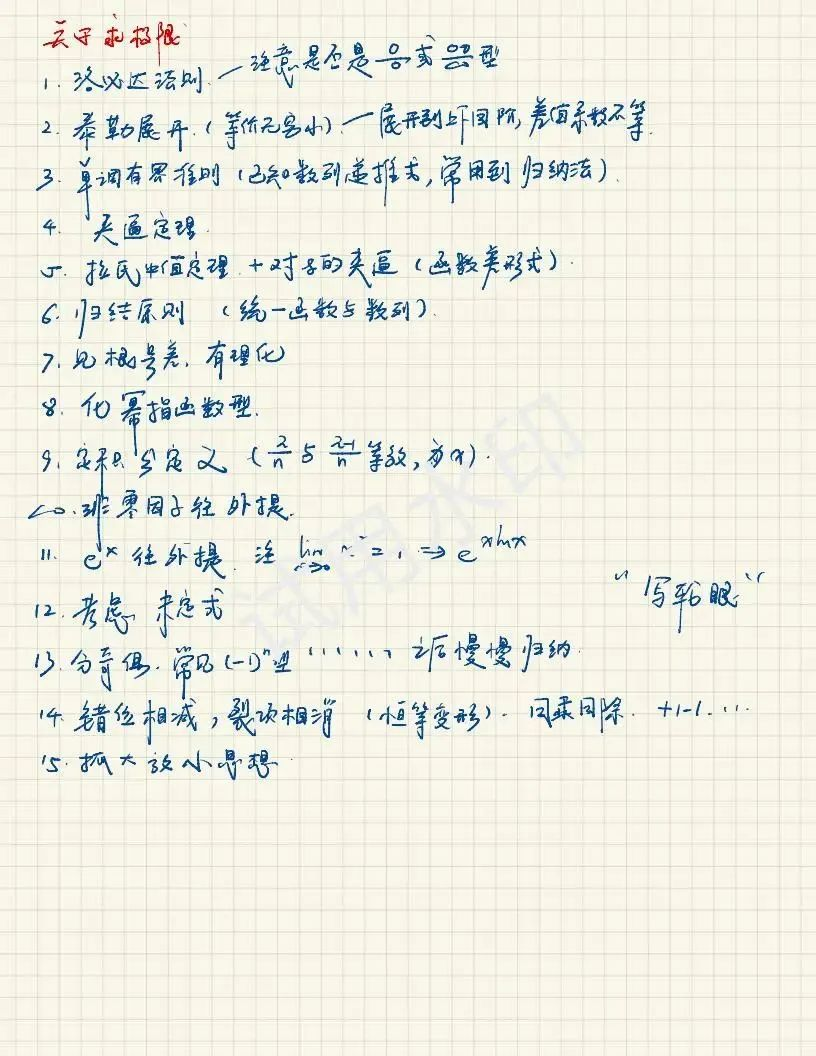 关于求极限
1. 洛必达法则 — 注意是否是 0/0 或 ∞/∞ 型
2. 泰勒展开 (等价无穷小) — 展开到上下同阶, 差值系数不等
3. 单调有界准则 (已知数列递推式, 常用到归纳法)
4. 夹逼定理
5. 拉氏中值定理 + 对ξ的夹逼 (函数差形式)
6. 归结原则 (统一函数与数列)
7. 见根号差, 有理化
8. 化幂指函数型
9. 定积分定义 (i/n 与 i-1/n 等效, 为x)
10. 非零因子往外提
11. eˣ 往外提 注 lim = 1 ⇒ e^xlnx
12. 考虑 未定式
"写轮眼"
13. 分奇偶. 常见(-1)ⁿ型 …… 之后慢慢归纳
14. 错位相减, 裂项相消 (恒等变形). 同乘同除. +1-1. …
15. 抓大放小思想
试用水印